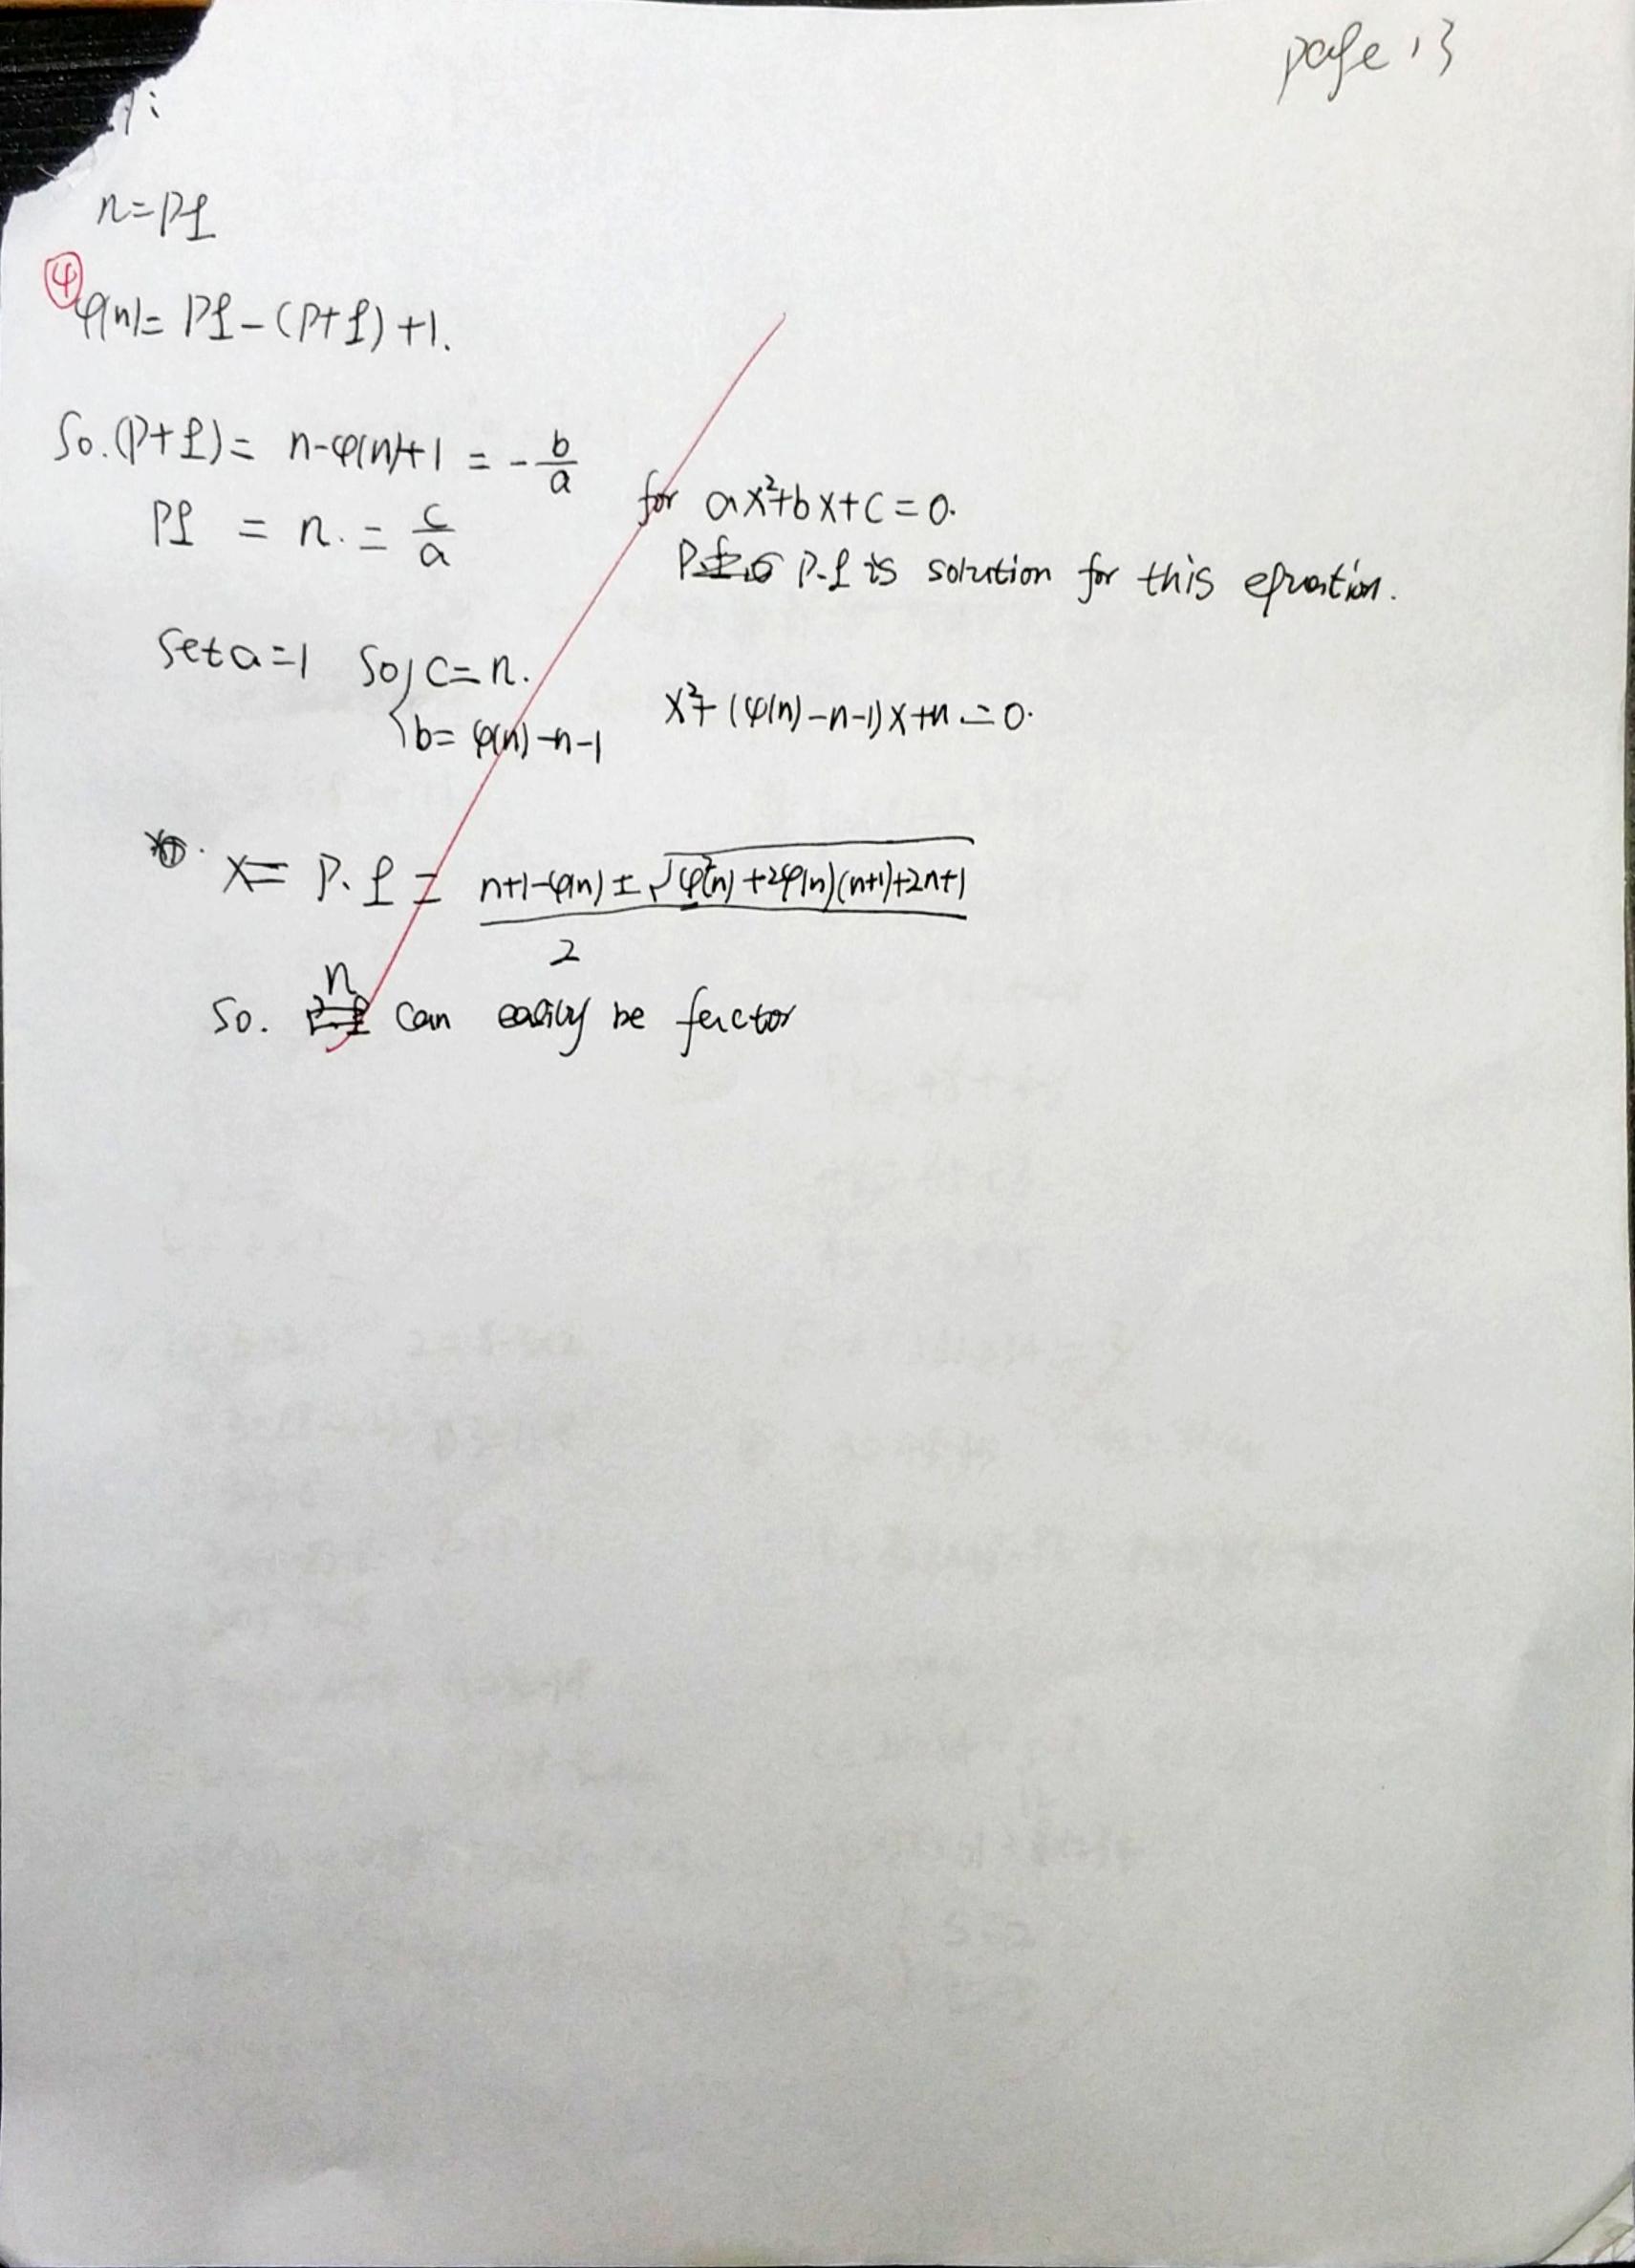 page 13
n=pq
④
φ(n)= pq-(p+q)+1.
So.(p+q)= n-φ(n)+1 = -b/a
for ax²+bx+c=0.
pq = n. = c/a
p.q is solution for this equation.
Set a=1 So, c=n.
b= φ(n)-n-1
x²+(φ(n)-n-1)x+n=0.
x= p.q = n+1-φ(n) ± √φ²(n)+2φ(n)(n+1)+2n+1 / 2
So. n can easily be factor